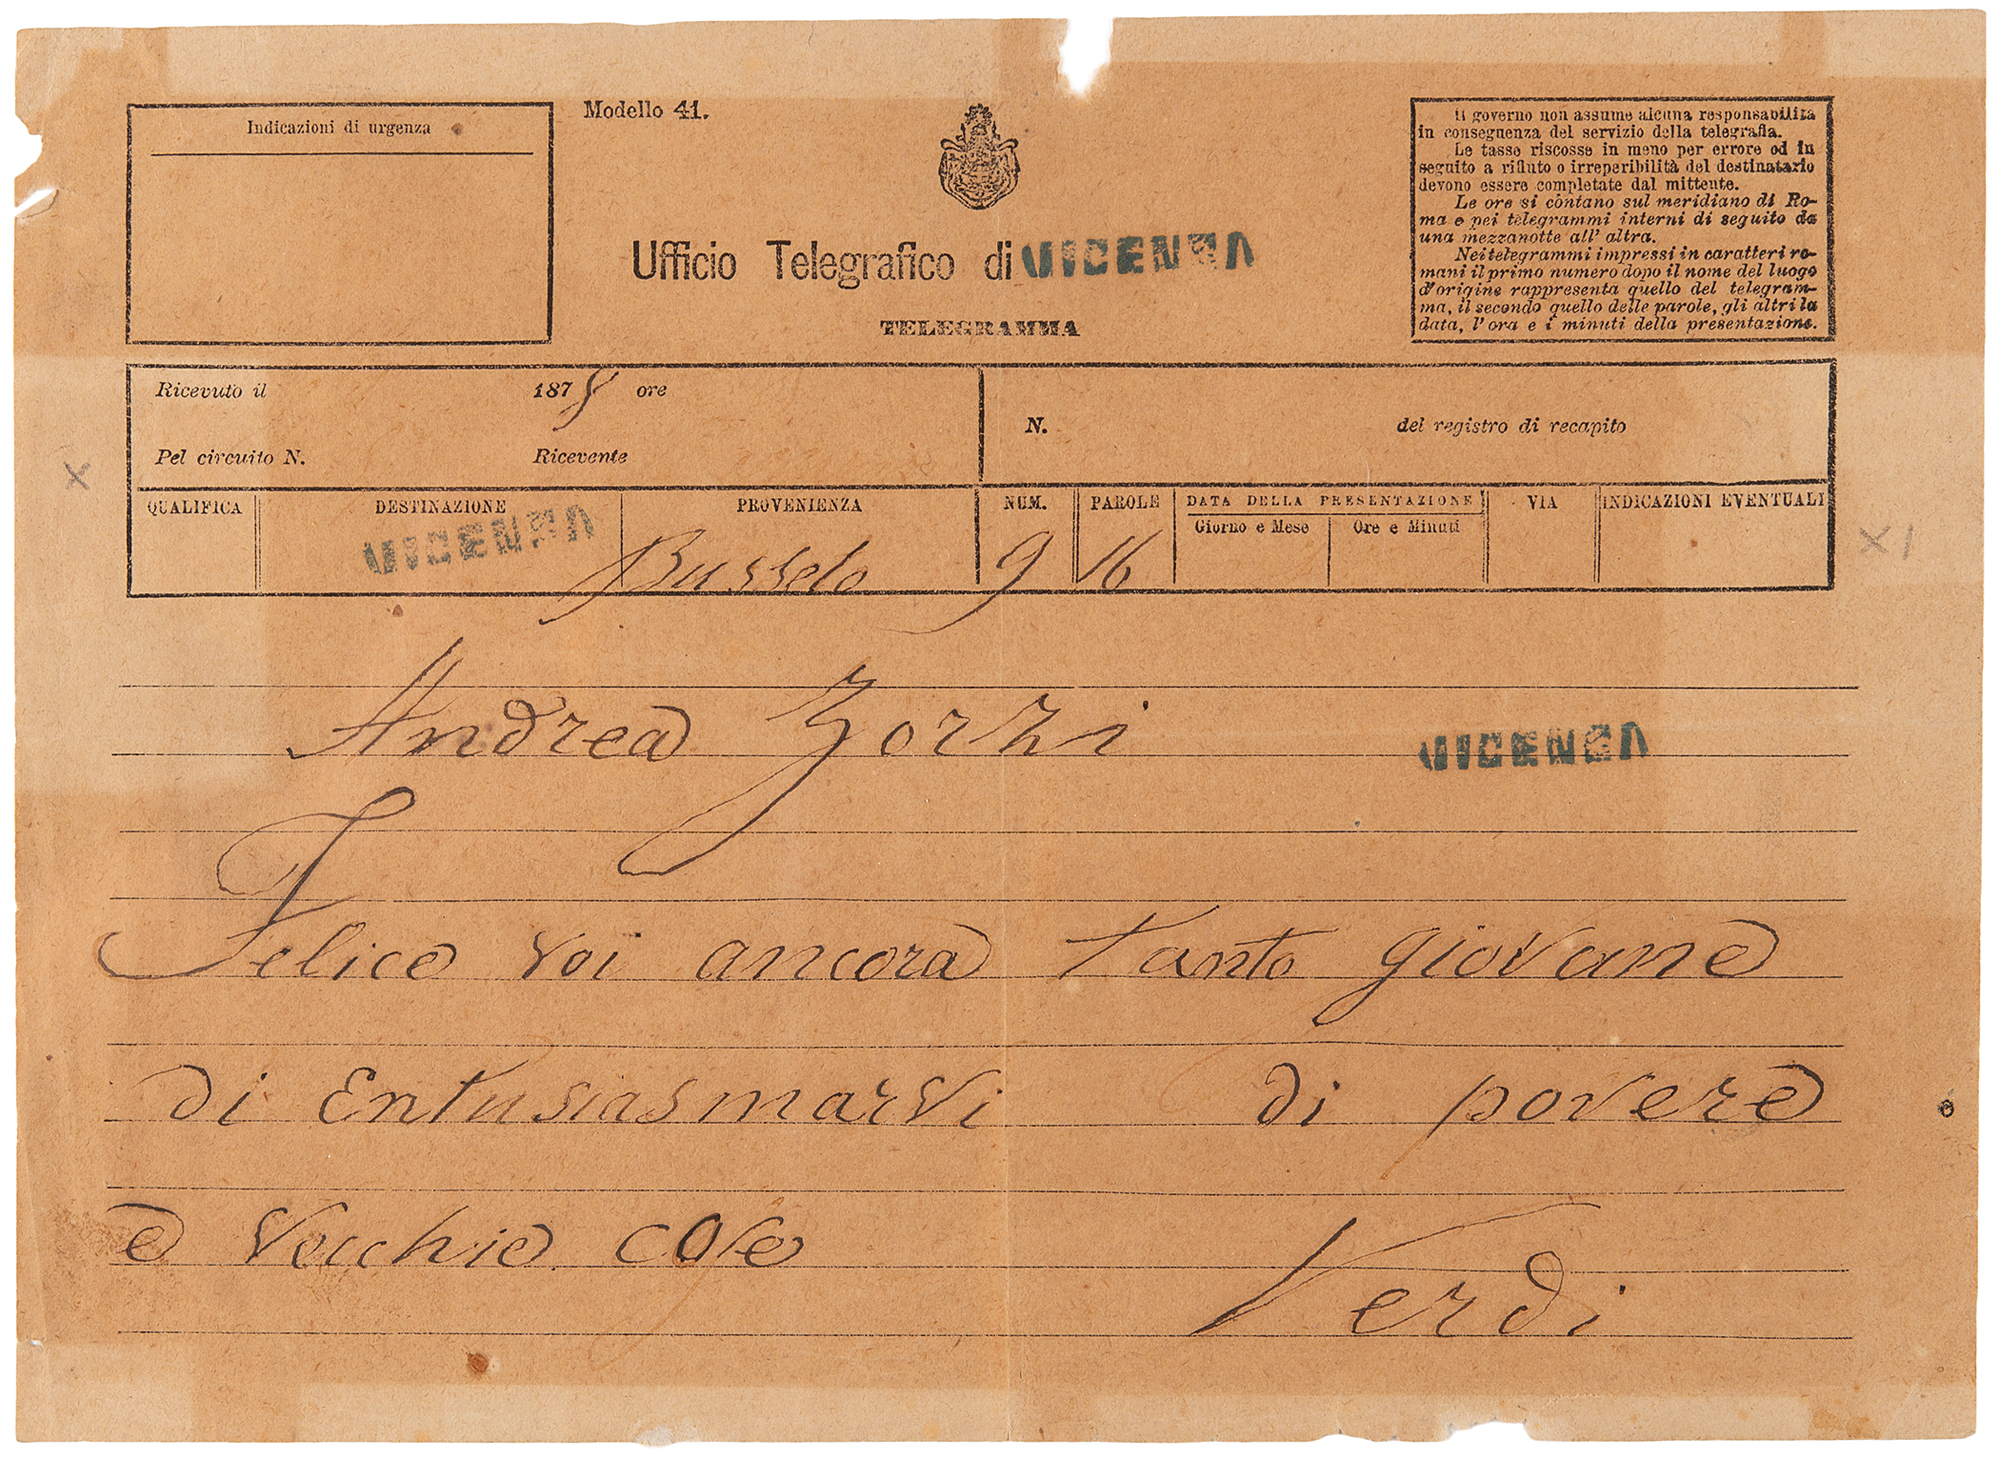 Indicazioni di urgenza
Modello 41.
Il governo non assume alcuna responsabilità
in conseguenza del servizio della telegrafia.
Le tasse riscosse in meno per errore od in
seguito a rifiuto o irreperibilità del destinatario
devono essere completate dal mittente.
Le ore si contano sul meridiano di Ro-
ma e pei telegrammi interni di seguito da
una mezzanotte all' altra.
Nei telegrammi impressi in caratteri ro-
mani il primo numero dopo il nome del luogo
d'origine rappresenta quello del telegram-
ma, il secondo quello delle parole, gli altri la
data, l'ora e i minuti della presentazione.
Ufficio Telegrafico di VICENZA
TELEGRAMMA
Ricevuto il 1878 ore
N. del registro di recapito
Pel circuito N. Ricevente
QUALIFICA DESTINAZIONE PROVENIENZA NUM. PAROLE DATA DELLA PRESENTAZIONE VIA INDICAZIONI EVENTUALI
Giorno e Mese Ore e Minuti
VICENZA Busseto 9 16
Andrea Zorzi
VICENZA
Felice voi ancora tanto giovane
di Entusiasmarvi di povere
e vecchie cose
Verdi
X
XI